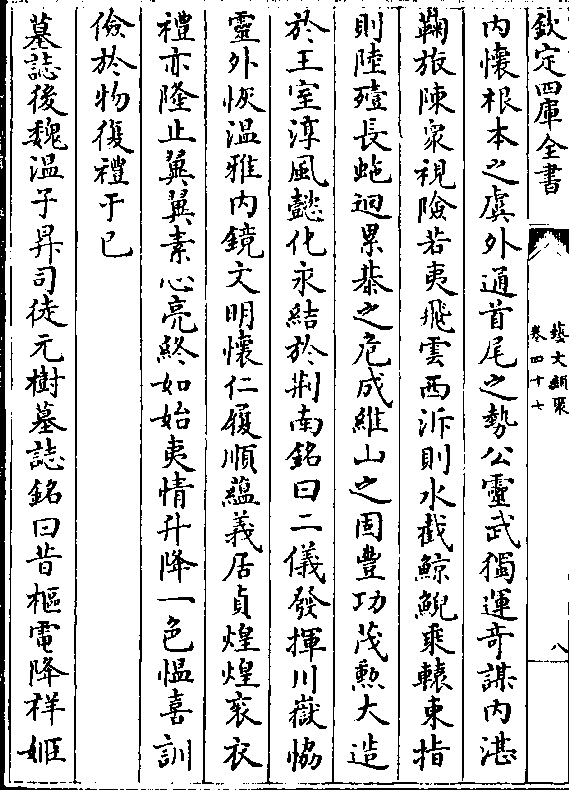 欽定四庫全書
藝文類聚
卷四十七
八
內懷根本之虞外通首尾之勢公靈武獨運竒謀內湛
鞠旅陳衆視險若夷飛雲西泝則水截鯨鯢乘轅東指
則陸殪長虵迴累棊之危成維山之固豐功茂勲大造
於王室淳風懿化永結於荆南銘曰二儀發揮川嶽恊
靈外恢温雅內鏡文明懷仁履順蘊義居貞煌煌衮衣
禮亦隆止翼翼素心亮終如始夷情升降一色愠喜訓
儉於物復禮于已
墓誌後魏温子昇司徒元樹墓誌銘曰昔樞電降祥姬